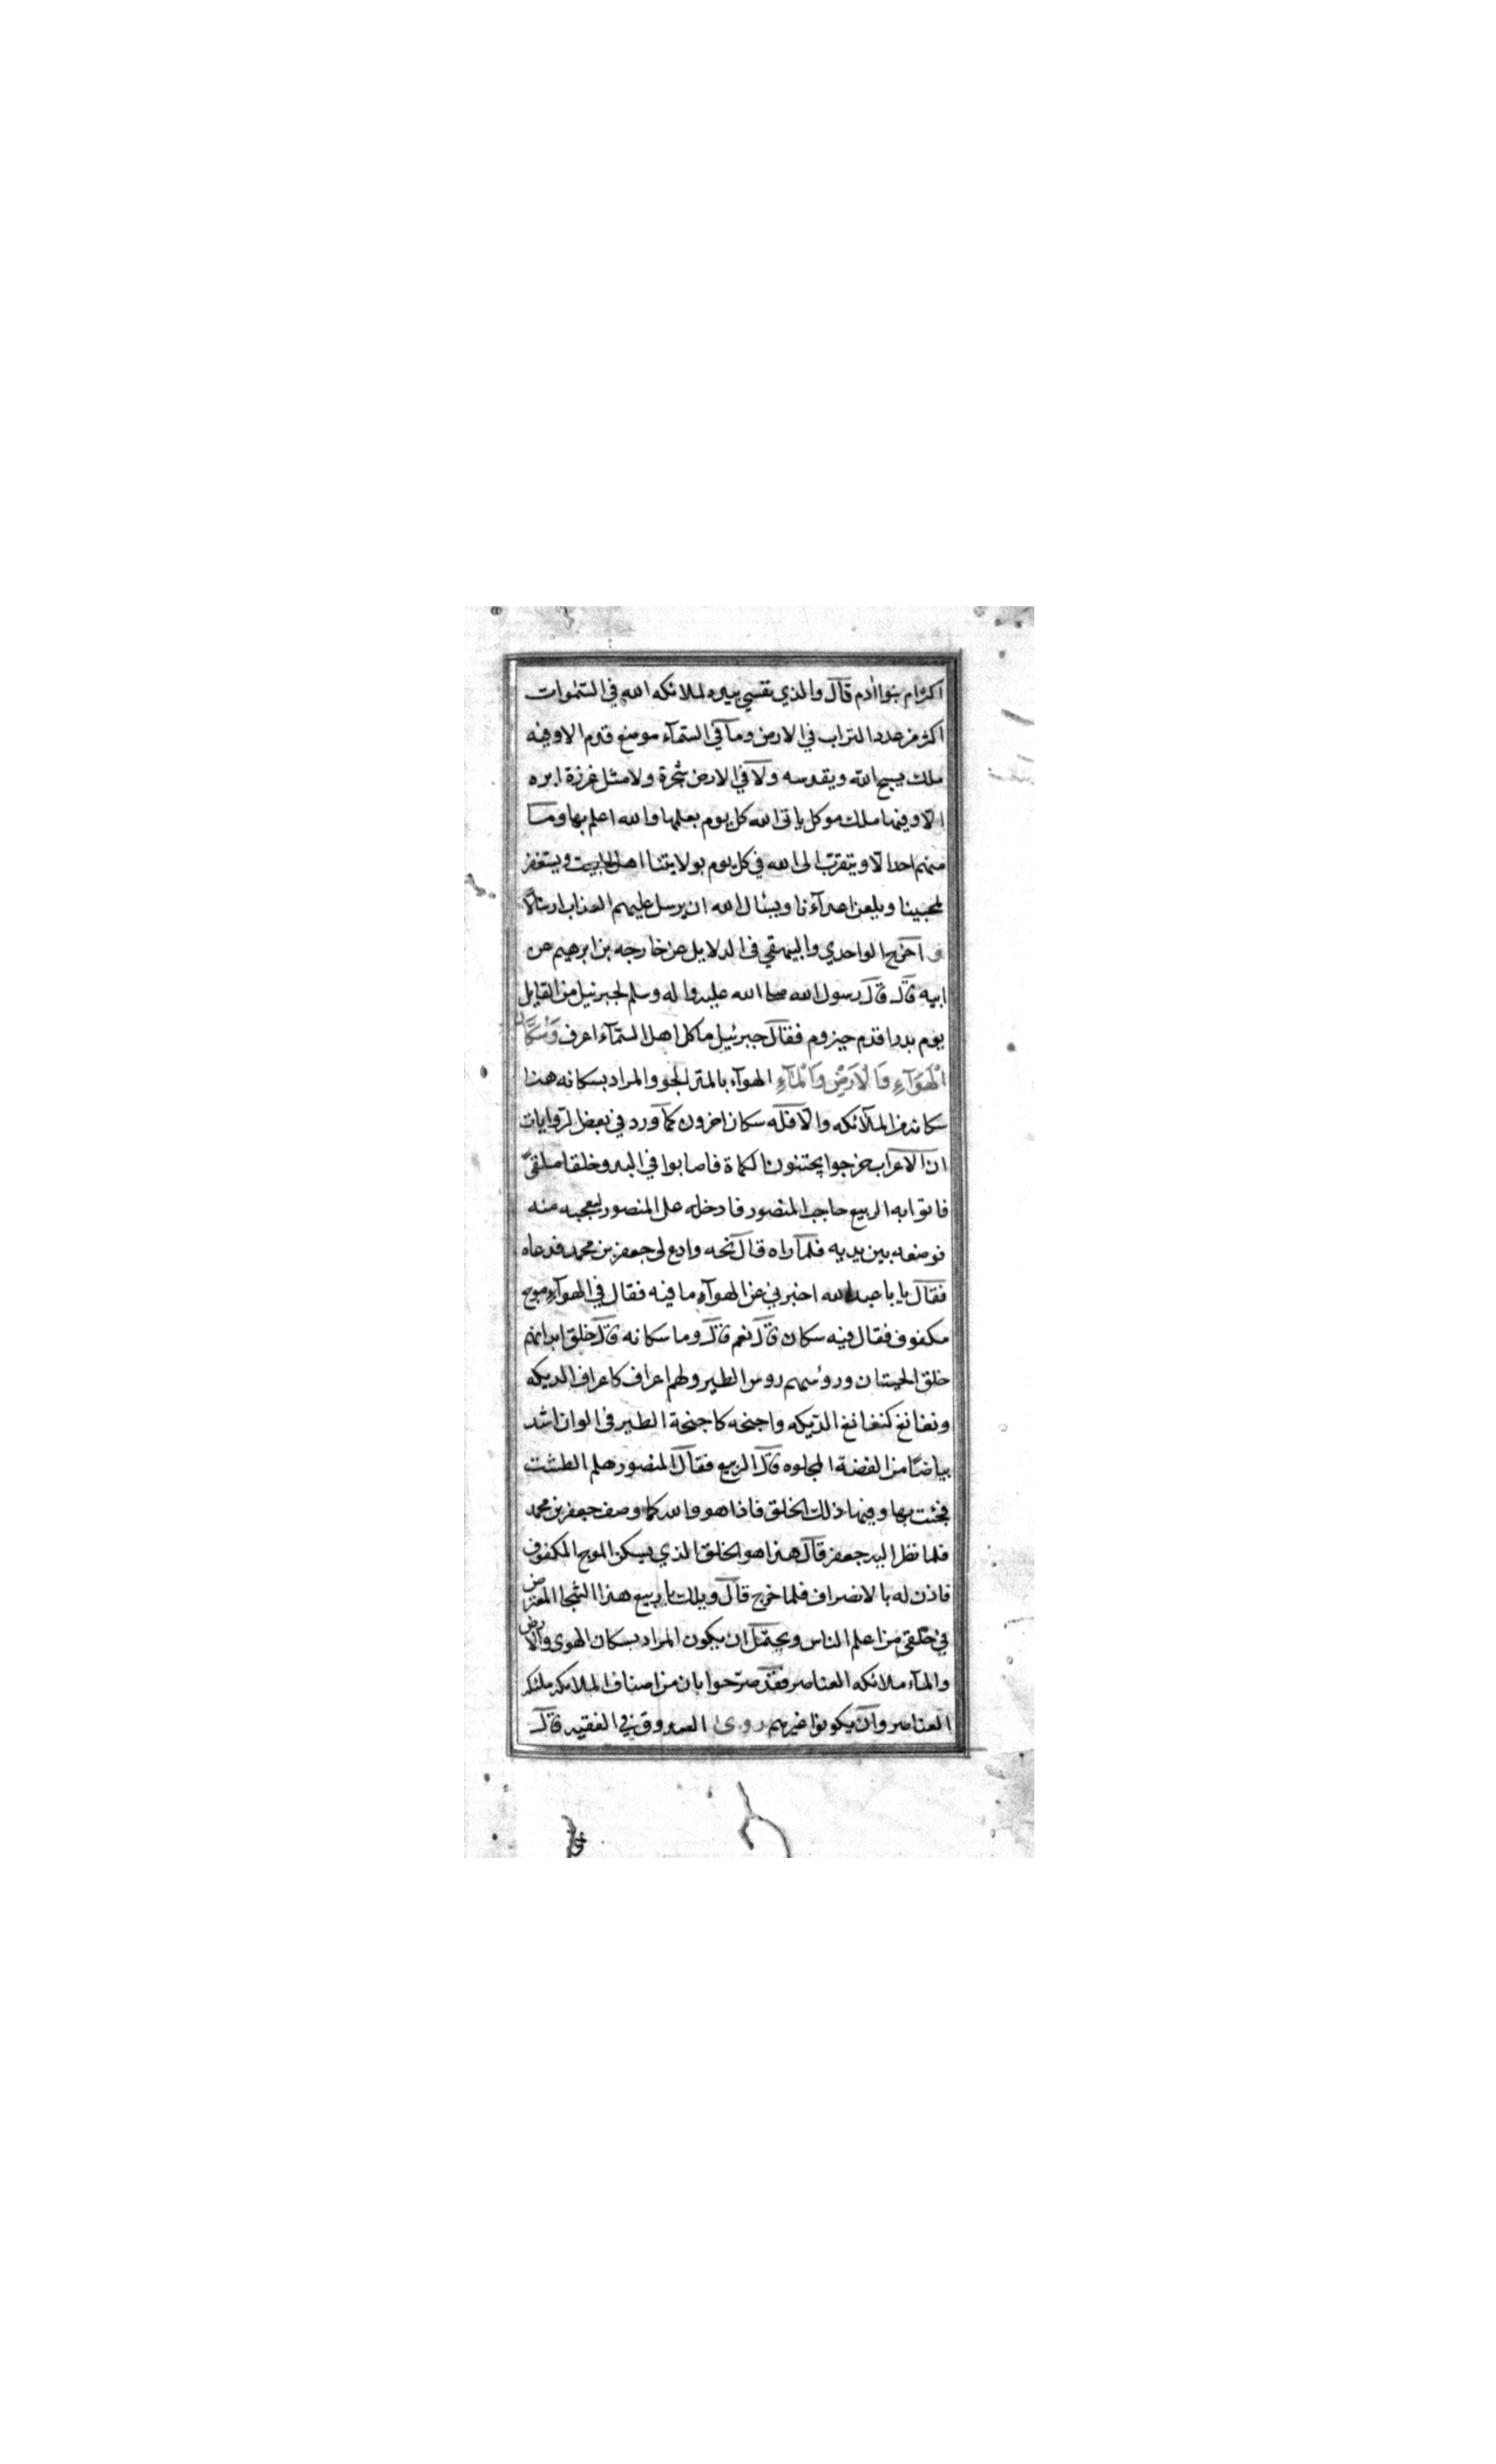 اكثر ام بنوا ادم قال والذي نفسي بيده لملائكه الله في السموات
اكثر من عدد التراب في الارض وما في السمآء موضع قدم الا وفيه
ملك يسبح الله ويقدسه ولا في الارض شجرة ولا مثل غرزة ابره
الا وفيها ملك موكل ياتى الله كل يوم بعلمها والله اعلم بها وما
منهم احد الا ويتقرب الى الله في كل يوم بولايتنا اهل البيت ويستغفر
لمحبينا ويلعن اعدآءنا ويسئال الله ان يرسل عليهم العذاب ارسالا
واخرج الواحدي والبيهقي فى الدلايل عن خارجه بن ابرهيم عن
ابيه قال قال رسول الله صلى الله عليه واله وسلم لجبرئيل من القايل
يوم بدر اقدم حيزوم فقال جبرئيل ما كل اهل السمآء اعرف وَسُكَّانَ
الْهَوَآءِ وَالْاَرَضِ وَالْمَآءِ الهوآء بالمد الجو والمراد بسكانه هنا
سكانه من الملآئكه والا فله سكان اخرون كما ورد في بعض الروايات
ان الاعراب خرجوا يجتنون الكماة فاصابوا في البدو خلقا ملقىً
فاتوا به الربيع حاجب المنصور فادخله على المنصور ليعجبه منه
فوضعه بين يديه فلما راه قال نحه وادع لى جعفر بن محمد فدعاه
فقال يا با عبد الله اخبرني عن الهوآء ما فيه فقال في الهوآء موج
مكفوف فقال فيه سكان قال نعم قال وما سكانه قال خلق ابدانهم
خلق الحيتان وروسهم روس الطير ولهم اعراف كاعراف الديكه
ونغانغ كنغانغ الديكه واجنحه كاجنحة الطير فى الوان اشد
بياضًا من الفضة المجلوه قال الربيع فقال المنصور هلم الطشت
فجئت بها وفيها ذلك الخلق فاذا هو والله كما وصف جعفر بن محمد
فلما نظر اليه جعفر قال هذا هو الخلق الذي يسكن الموج المكفوف
فاذن له بالانصراف فلما خرج قال ويلك يا ربيع هذا الشجا المعترض
في حلقى من اعلم الناس ويحتمل ان يكون المراد بسكان الهوى والارض
والمآء ملائكه العناصر فقد صرحوا بان من اصناف الملائكه ملئكه
العناصر وان يكونوا غيرهم روى الصدوق في الفقيه قال